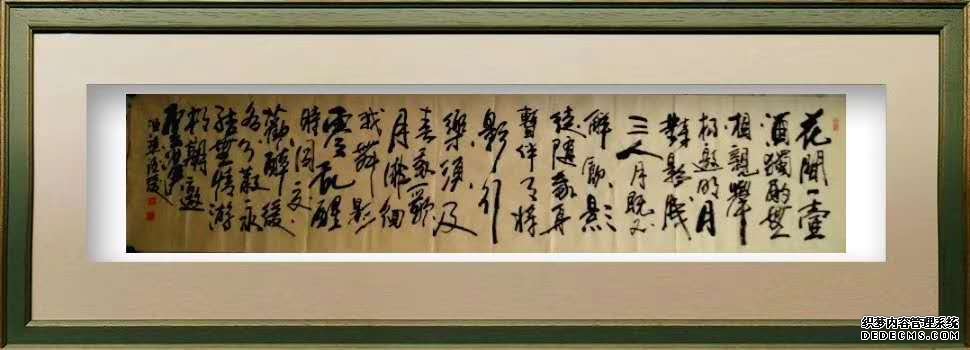 花間一壺
酒獨酌無
相親舉
杯邀明月
對影成
三人月既不
解飲影
徒隨我身
暫伴月將
影行
樂須及
春我歌
月徘徊
我舞影
零亂醒
時同交
歡醉後
各分散永
結無情游
相期邈
雲漢
织梦内容管理系统
DEDECMS.COM